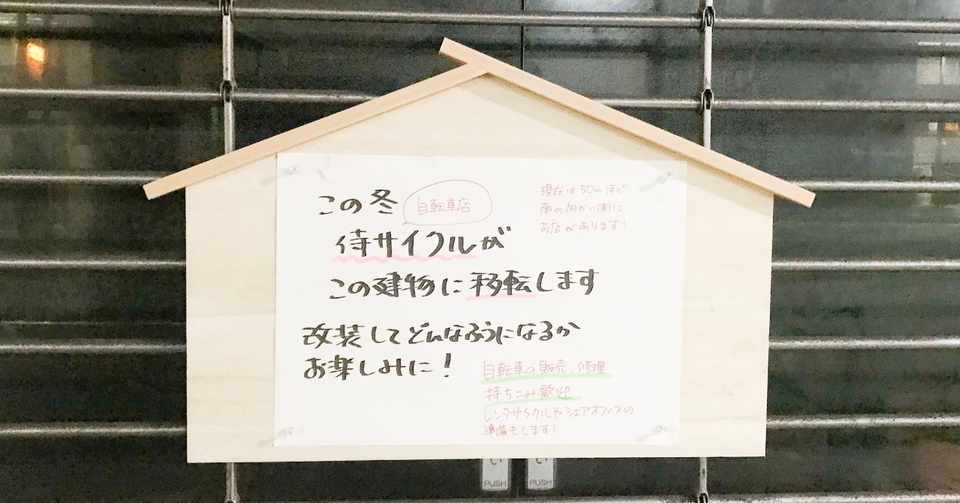 この冬
自転車店
侍サイクルが
この建物に移転します
改装してどんなふうになるか
お楽しみに!
現在は50mほど
南の向かい側に
お店があります!
自転車の販売 修理
持ちこみ歓迎
レンタサイクルやシェアオフィスの
準備もします!
い
PUSH
PUSH